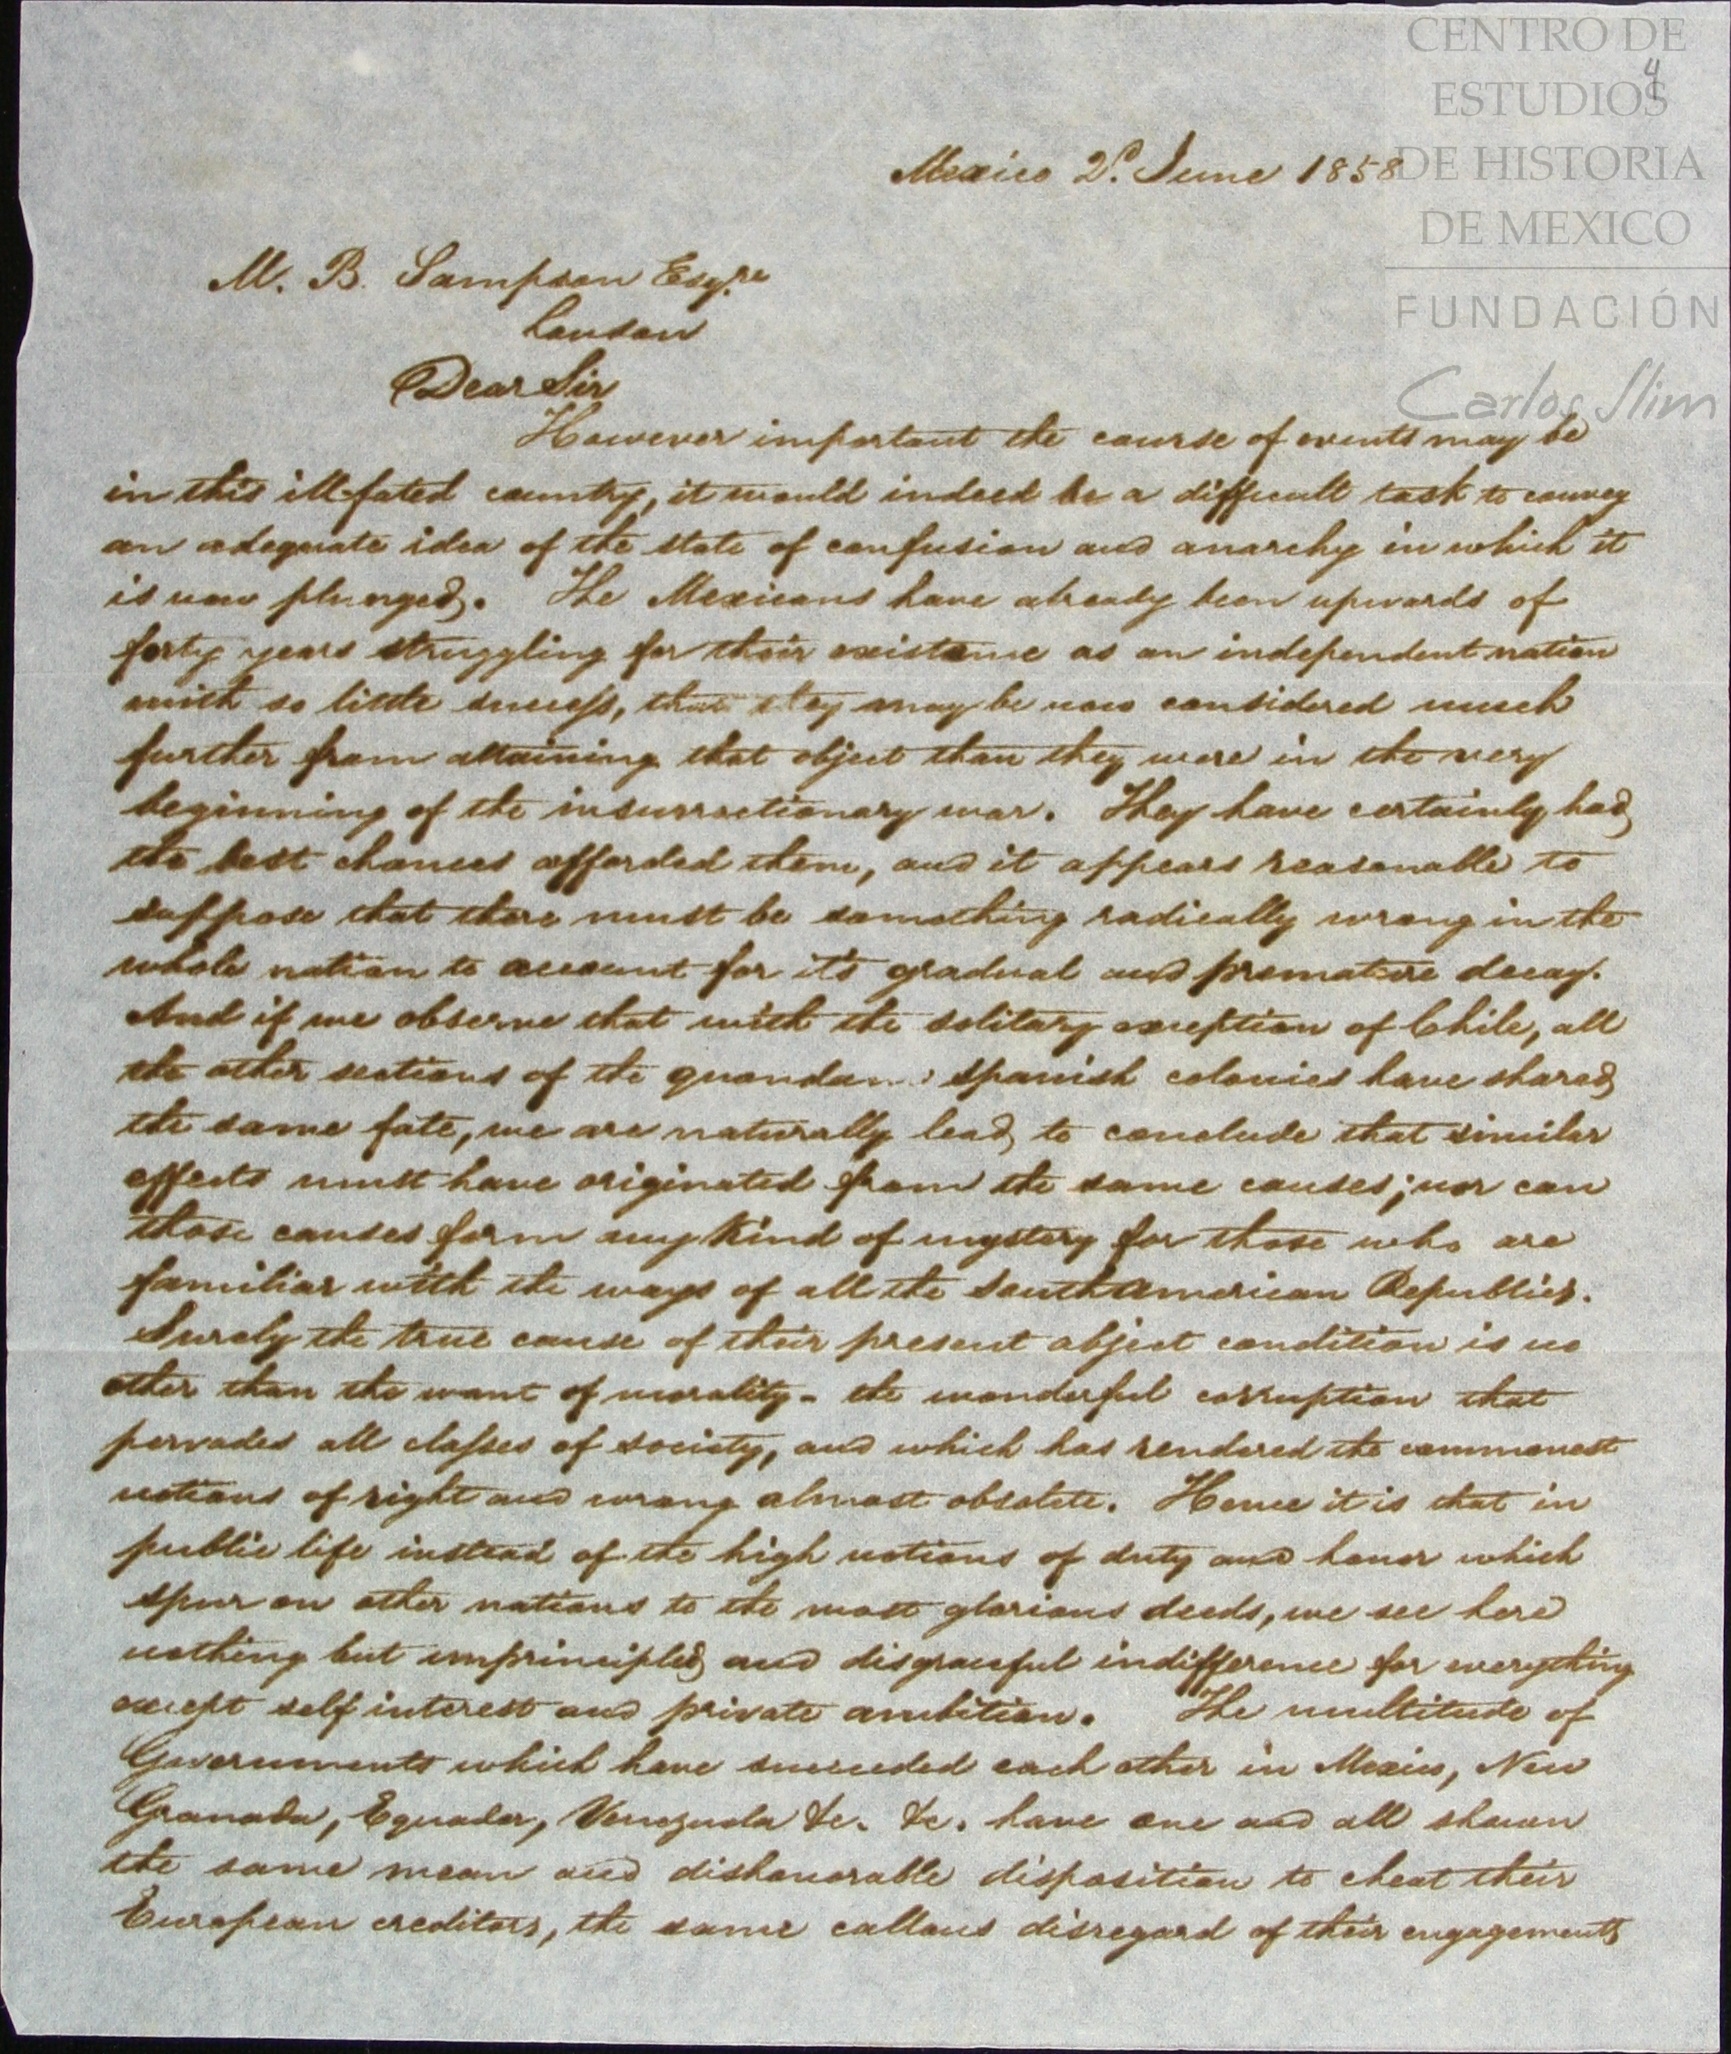 CENTRO DE
ESTUDIOS
DE HISTORIA
DE MEXICO
FUNDACIÓN
Carlos Slim
4
Mexico 2d. June 1858
M. B. Sampson Esqre
London
Dear Sir
However important the course of events may be
in this ill-fated country, it would indeed be a difficult task to convey
an adequate idea of the state of confusion and anarchy in which it
is now plunged. The Mexicans have already been upwards of
forty years struggling for their existence as an independent nation
with so little success, that they may be now considered much
further from attaining that object than they were in the very
beginning of the insurrectionary war. They have certainly had
the best chances afforded them, and it appears reasonable to
suppose that there must be something radically wrong in the
whole nation to account for it's gradual and premature decay.
And if we observe that with the solitary exception of Chile, all
the other sections of the quondam spanish colonies have shared
the same fate, we are naturally lead to conclude that similar
effects must have originated from the same causes; nor can
those causes form any kind of mystery for those who are
familiar with the ways of all the South American Republics.
Surely the true cause of their present abject condition is no
other than the want of morality - the wonderful corruption that
pervades all classes of society, and which has rendered the commonest
notions of right and wrong almost obsolete. Hence it is that in
public life instead of the high notions of duty and honor which
spur on other nations to the most glorious deeds, we see here
nothing but unprincipled and disgraceful indifference for everything
except self interest and private ambition. The multitude of
Governments which have succeeded each other in Mexico, New
Granada, Equador, Venezuela &c. &c. have one and all shown
the same mean and dishonorable disposition to cheat their
European creditors, the same callous disregard of their engagements